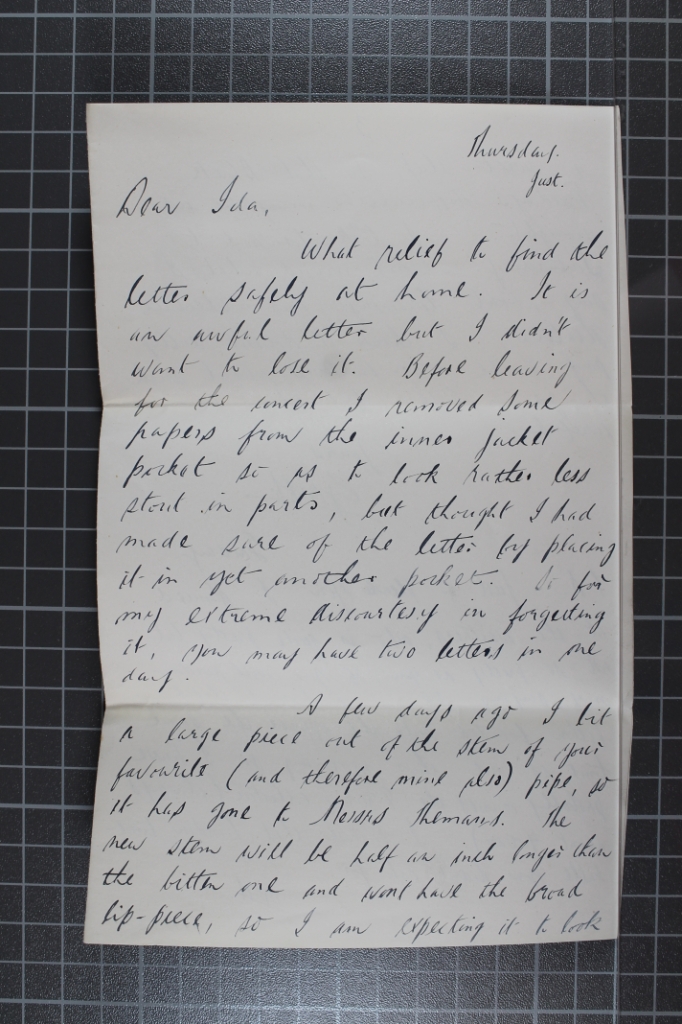 Thursday.
Just.
Dear Ida,
What relief to find the
letter safely at home. It is
an awful letter but I didn't
want to lose it. Before leaving
for the concert I removed some
papers from the inner jacket
pocket so as to look rather less
stout in parts, but thought I had
made sure of the letter by placing
it in yet another pocket. So for
my extreme discourtesy in forgetting
it, you may have two letters in one
day.
A few days ago I bit
a large piece out of the stem of your
favourite (and therefore mine also) pipe, so
it has gone to Messrs The
new stem will be half an inch longer than
the bitten one and wont have the broad
lip-piece, so I am expecting it to look